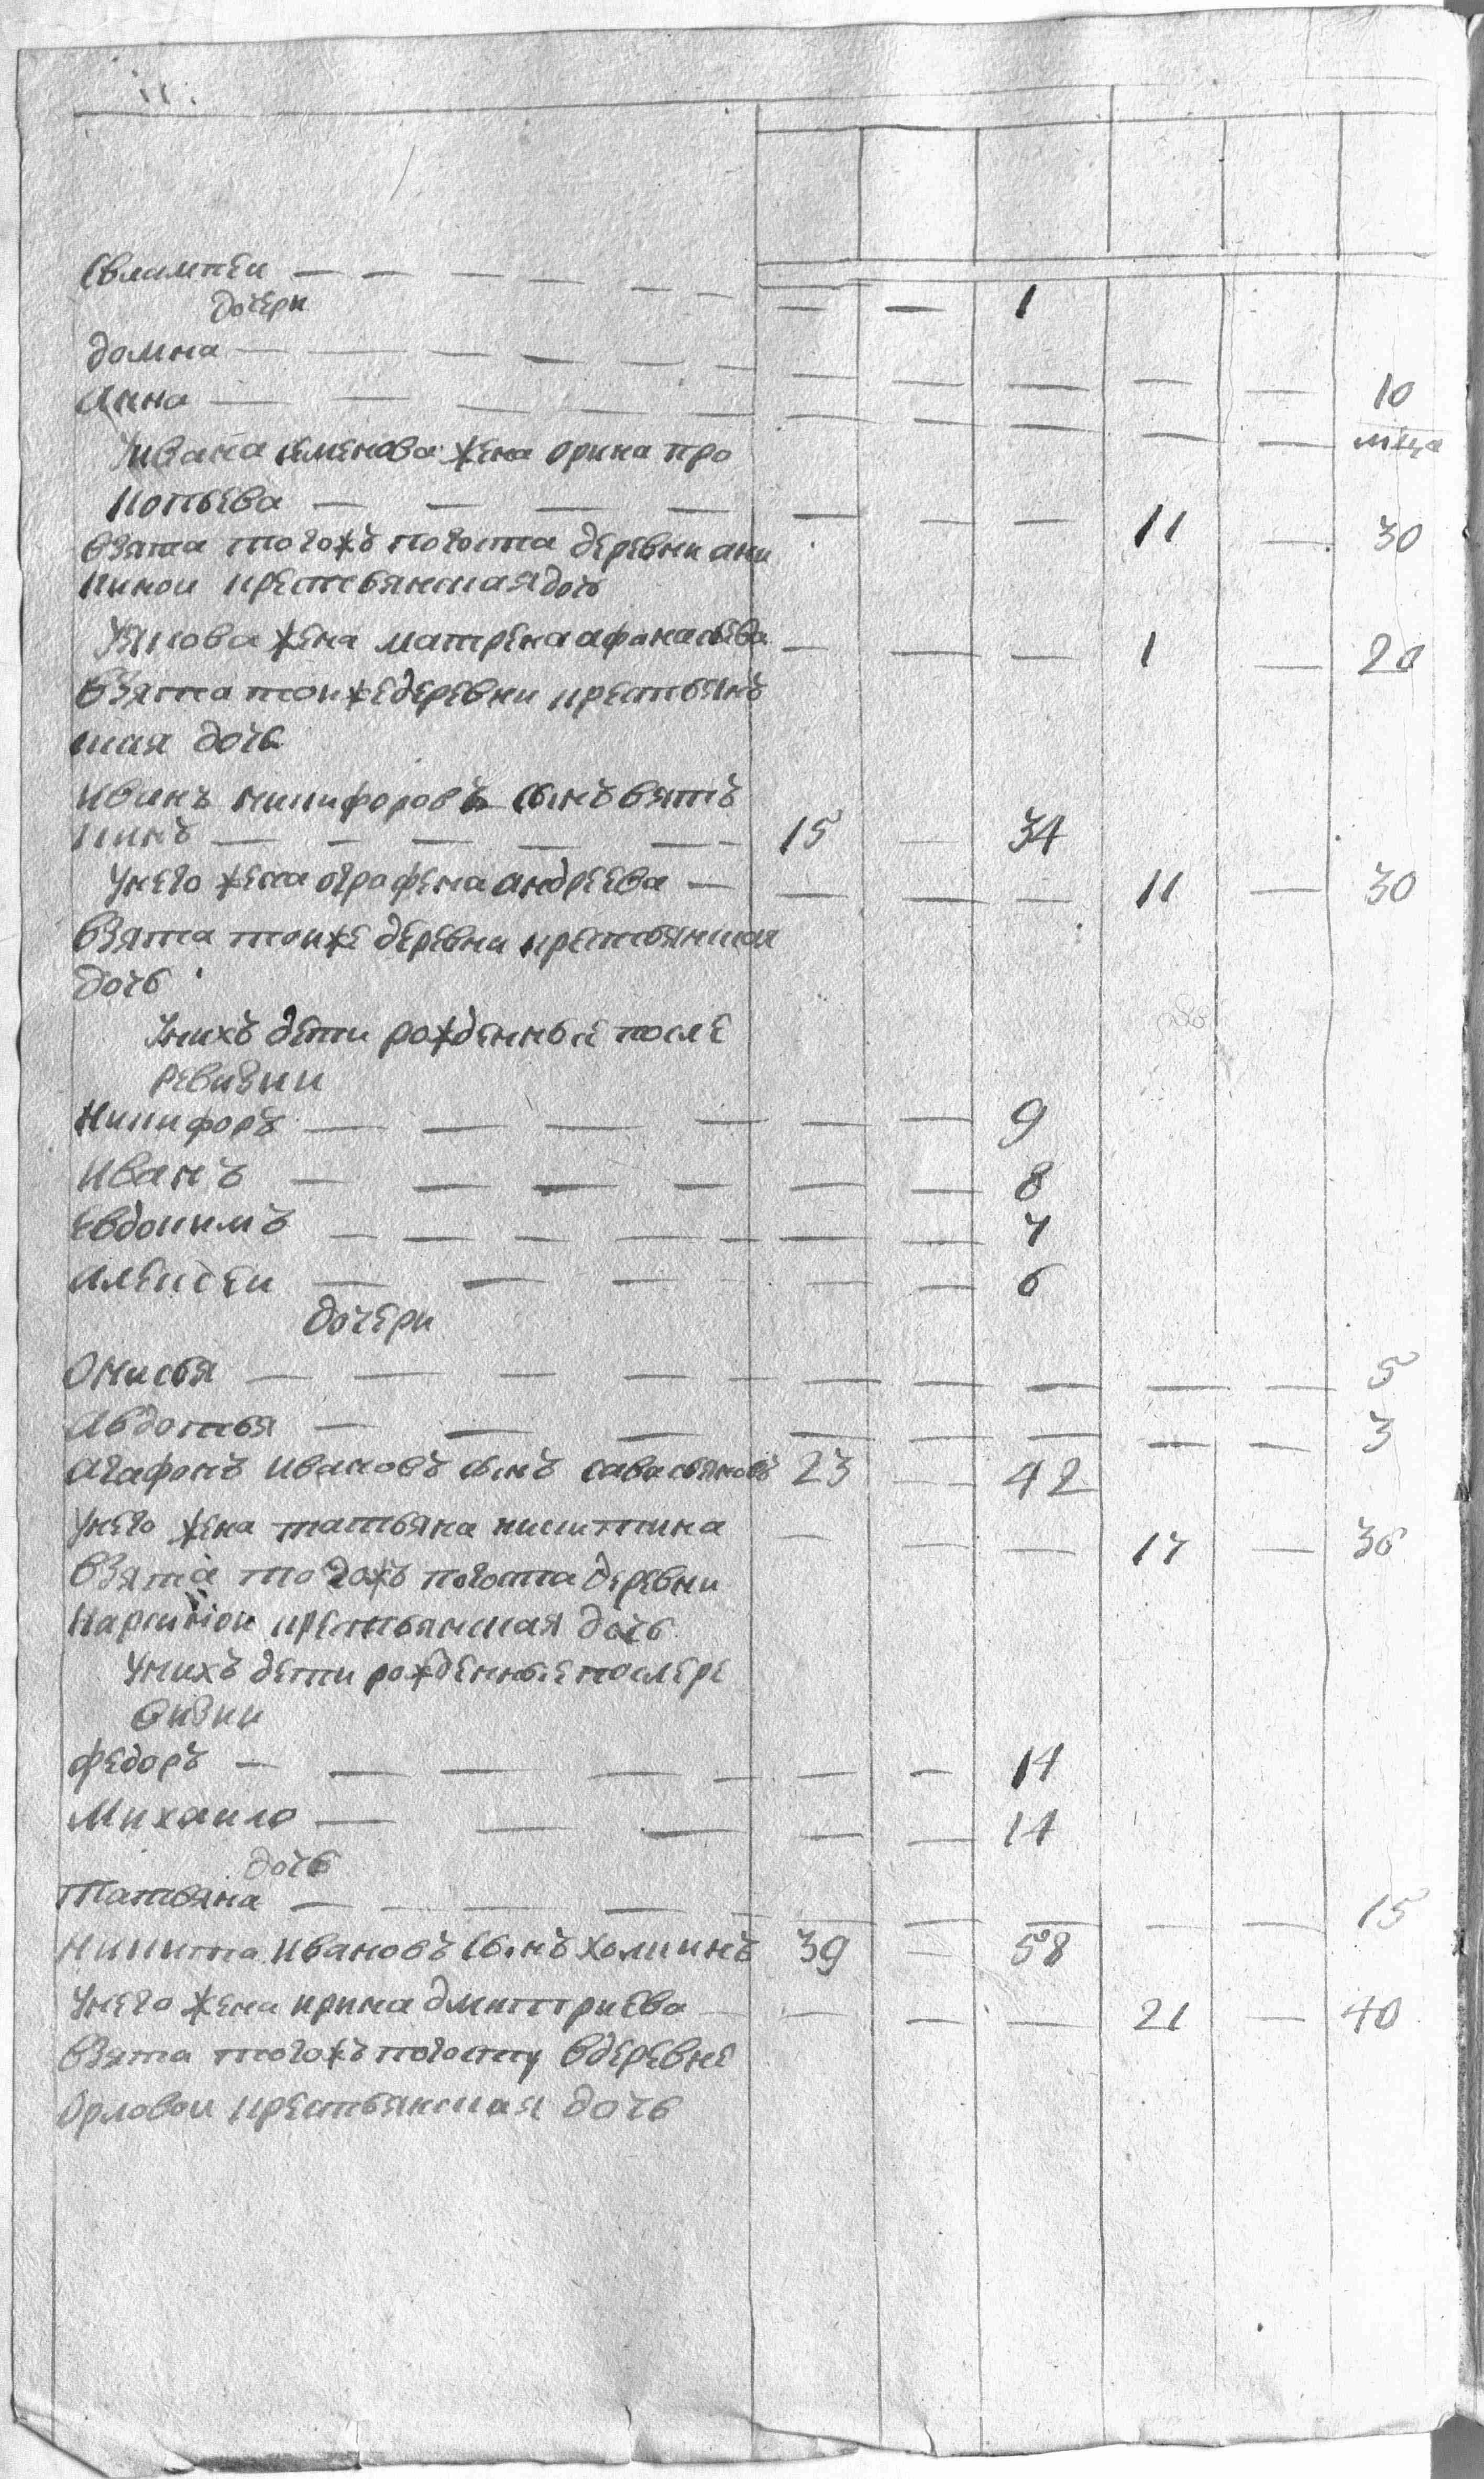 Евлампеи — — — — — — — — 1
дочери
домна — — — — — — — — — — — 10
Анна — — — — — — — — — — — мца
Уивана семенова жена орина про
копьева — — — — — — — 11 — 30
взята тогожъ погоста деревни ани
киной крестьянская дочь
Уякова жена матрена афонасьева — — — 1 — 20
взята тоиже деревни крестьянъ
ская дочь
иванъ никифоровъ сынъ вятъ
кинъ — — — — — 15 — 34
Унего жена ографена андреева — — — — 11 — 30
взята тоиже деревни крестьянская
дочь
Унихъ дети рожденные после
ревизии
Никифоръ — — — — — — 9
Иванъ — — — — — — 8
Евдокимъ — — — — — — — 7
Алексеи — — — — — — 6
дочери
Онисья — — — — — — — — — — 5
Авдотья — — — — — — — — 3
агафонъ ивановъ сынъ савасьяновъ 23 — 42
Унего жена татьяна никитина — — — 17 — 36
взята тогожъ погоста деревни
крестьянская дочь
Унихъ дети рожденные после ре
визии
федоръ — — — — — — — 14
Михаило — — — — — 14
дочь
Татьяна — — — — — — — — — — 15
Никита ивановъ сынъ холкинъ 39 — 58
Унего жена ирина дмитриева — — — — 21 — 40
взята тогожъ погосту вдеревне
Орловои крестьянская дочь